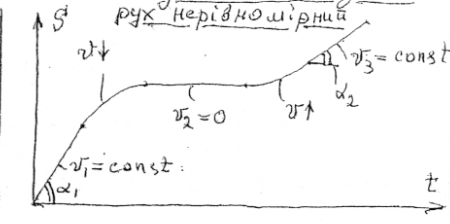 рух нерівномірний
S
v↓
v₃ = const
α₂
v₂ = 0
v↑
v₁ = const
α₁
t